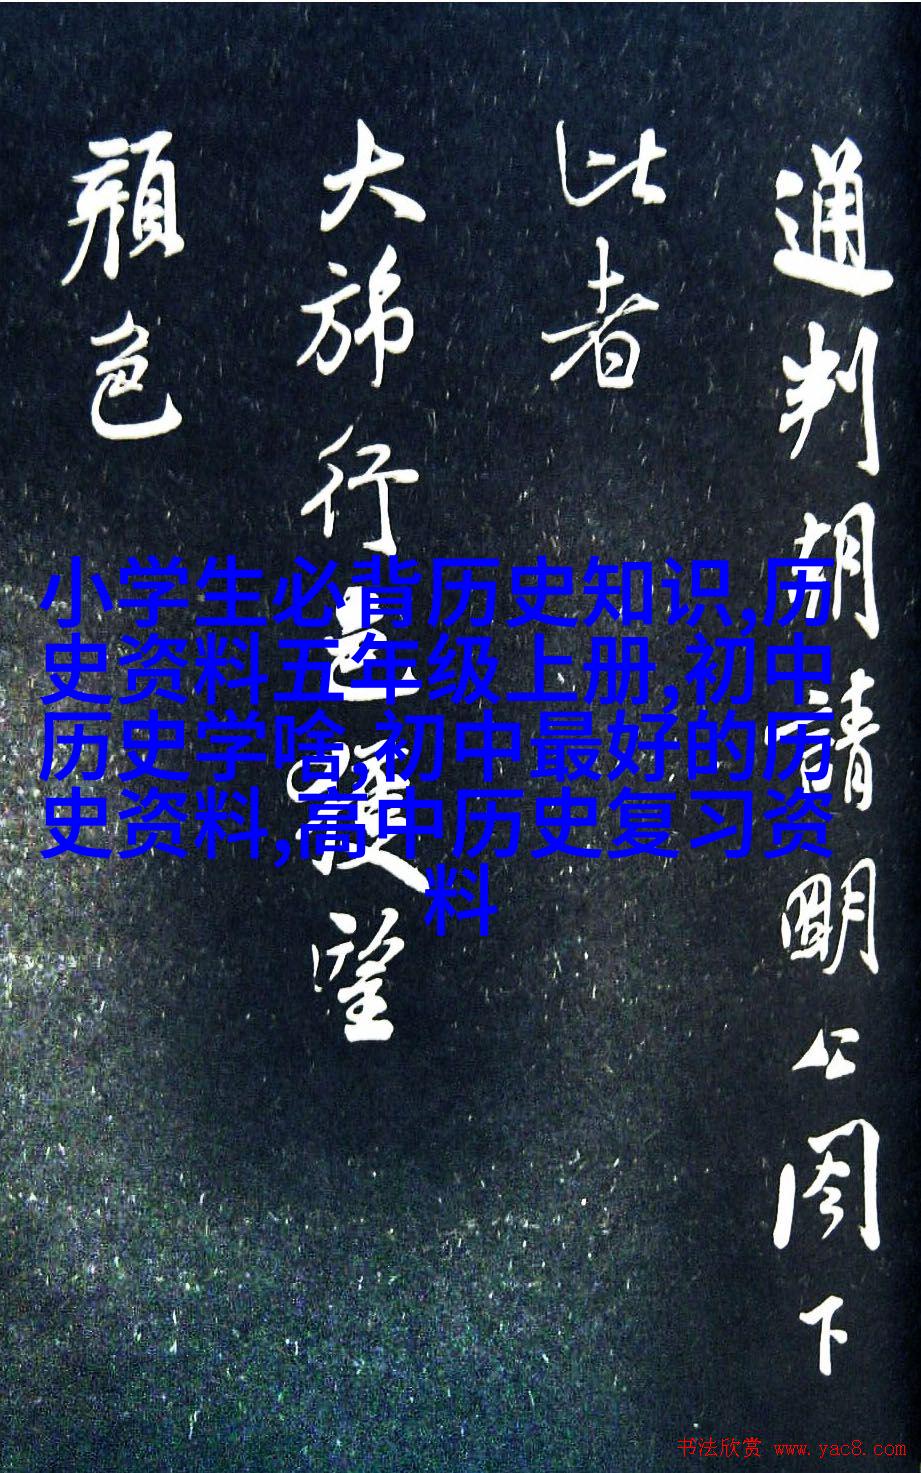 通判朝請朙公閤下
此者
大旆行邑獲望
顔色
小学生必背历史知识,历
史资料五年级上册,初中
历史学啥,初中最好的历
史资料,高中历史复习资
料
书法欣赏 www.yac8.com